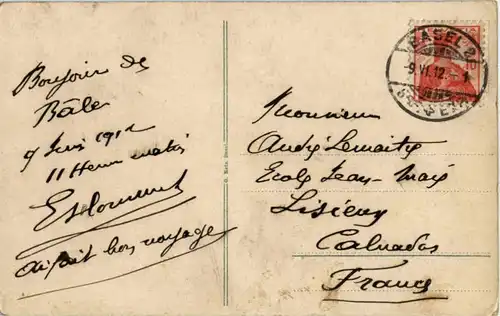 Bonjour de
Bâle
9 Juin 1912
11 Heur matin
ai fait bon voyage
BASEL 2
-9.VI.12.-1
Monsieur
André Lemaitre
Ecole Jean-Macé
Lisieux
Calvados
France